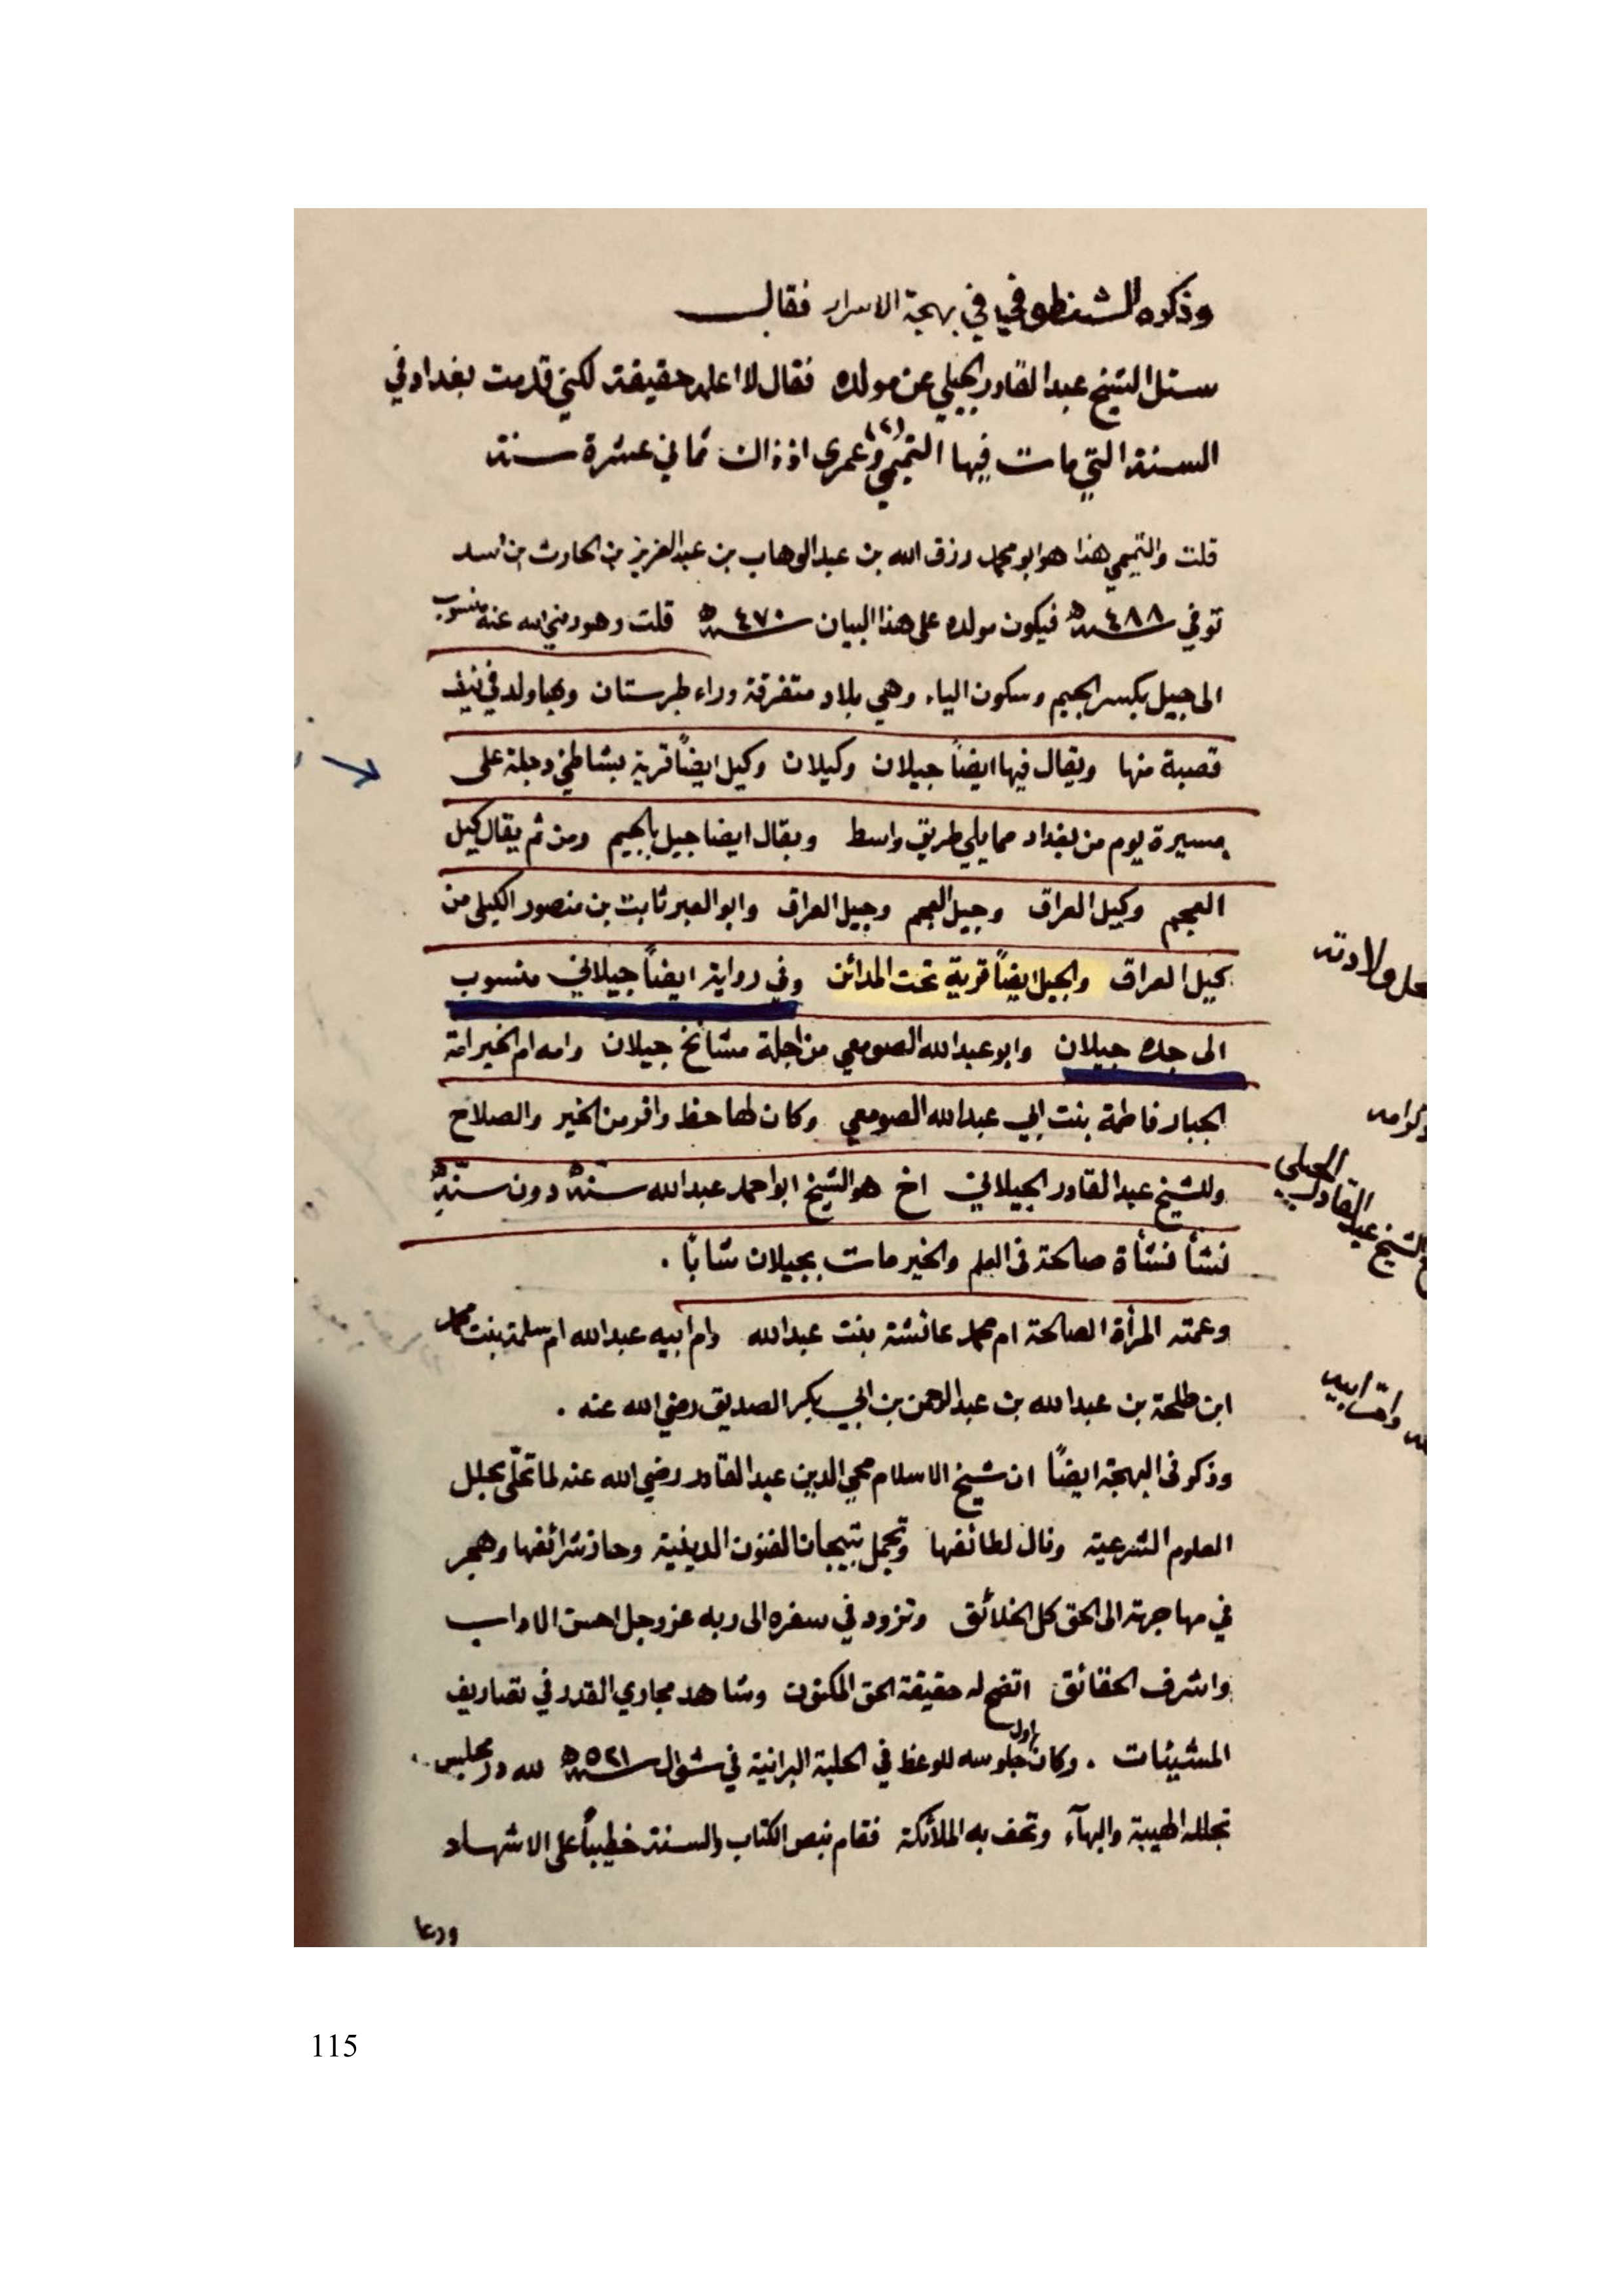 وذكره الشنطوفي في بهجة الاسرار فقال
سئل الشيخ عبد القادر الجيلي عن مولده فقال لا اعلم حقيقة لكني قدمت بغداد في
السنة التي مات فيها التميمي (٢) وعمري اذ ذاك ثماني عشرة سنة
قلت والتميمي هذا هو ابو محمد رزق الله بن عبد الوهاب بن عبد العزيز بن الحارث بن اسد
توفي سنة ٤٨٨ هـ فيكون مولده على هذا البيان سنة ٤٧٠ هـ قلت وهو رضي الله عنه منسوب
الى جيل بكسر الجيم وسكون الياء وهي بلاد متفرقة وراء طبرستان وبها ولد في نيف
قصبة منها ويقال فيها ايضاً جيلان وكيلان وكيل ايضاً قرية بشاطئ دجلة على
مسيرة يوم من بغداد مما يلي طريق واسط ويقال ايضا جيل بالجيم ومن ثم يقال كيل
العجم وكيل العراق وجيل العجم وجيل العراق وابو العبر ثابت بن منصور الكيلي من
كيل العراق والجيل ايضاً قرية تحت المدائن وفي رواية ايضاً جيلاني منسوب
الى جده جيلان وابو عبد الله الصومعي من اجلة مشائخ جيلان وامه ام الخير امة
الجبار فاطمة بنت ابي عبد الله الصومعي وكان لها حظ وافر من الخير والصلاح
وللشيخ عبد القادر الجيلاني اخ هو الشيخ ابو احمد عبد الله سنه دون سنه
نشأ نشأة صالحة في العلم والخير مات بجيلان شاباً .
وعمته المرأة الصالحة ام محمد عائشة بنت عبد الله وام ابيه عبد الله ام سلمة بنت محمد
ابن طلحة بن عبد الله بن عبد الرحمن بن ابي بكر الصديق رضي الله عنه .
وذكر في البهجة ايضاً ان شيخ الاسلام محي الدين عبد القادر رضي الله عنه لما تحلّى بحلل
العلوم الشرعية ونال لطائفها وتجمل بتيجان الفنون الدينية وحاز شرائفها وهجر
في مهاجرته الى الحق كل الخلائق وتزود في سفره الى ربه عز وجل احسن الاداب
واشرف الحقائق اتضح له حقيقة الحق المكنون وشاهد مجاري القدر في تصاريف
المشيئات . وكان اول جلوسه للوعظ في الحلبة البرانية في شوال سنة ٥٢١ هـ لله در مجلس
تجلله الهيبة والبهآء وتحف به الملائكة فقام بنص الكتاب والسنة خطيباً على الاشهاد
ودعا
محل ولادته
الشيخ عبد القادر الجيلي
115